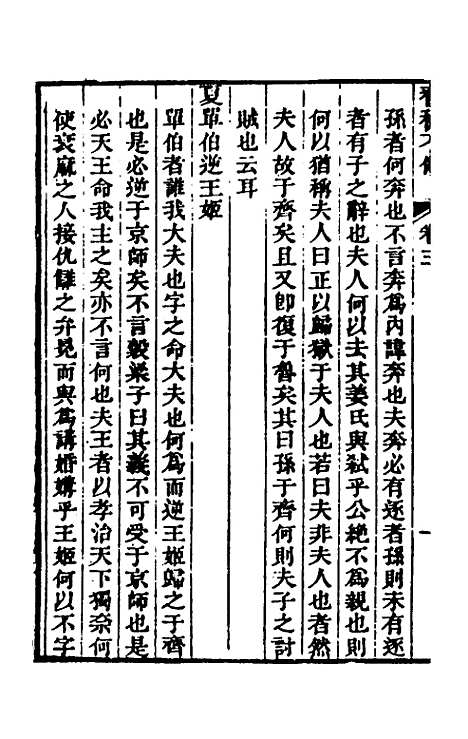 卷三
一
孫者何奔也不言奔爲內諱奔也夫奔必有逐者孫則未有逐
者有子之辭也夫人何以去其姜氏與弑乎公絶不爲親也則
何以猶稱夫人曰正以歸獄于夫人也若曰夫非夫人也者然
夫人故于齊矣且又卽復于魯矣其曰孫于齊何則夫子之討
賊也云耳
夏單伯逆王姬
單伯者誰我大夫也字之命大夫也何爲而逆王姬歸之于齊
也是必逆于京師矣不言榖梁子曰其義不可受于京師也是
必天王命我主之矣亦不言何也夫王者以孝治天下獨柰何
使衰麻之人接仇讎之弁冕而與爲講婚媾乎王姬何以不字